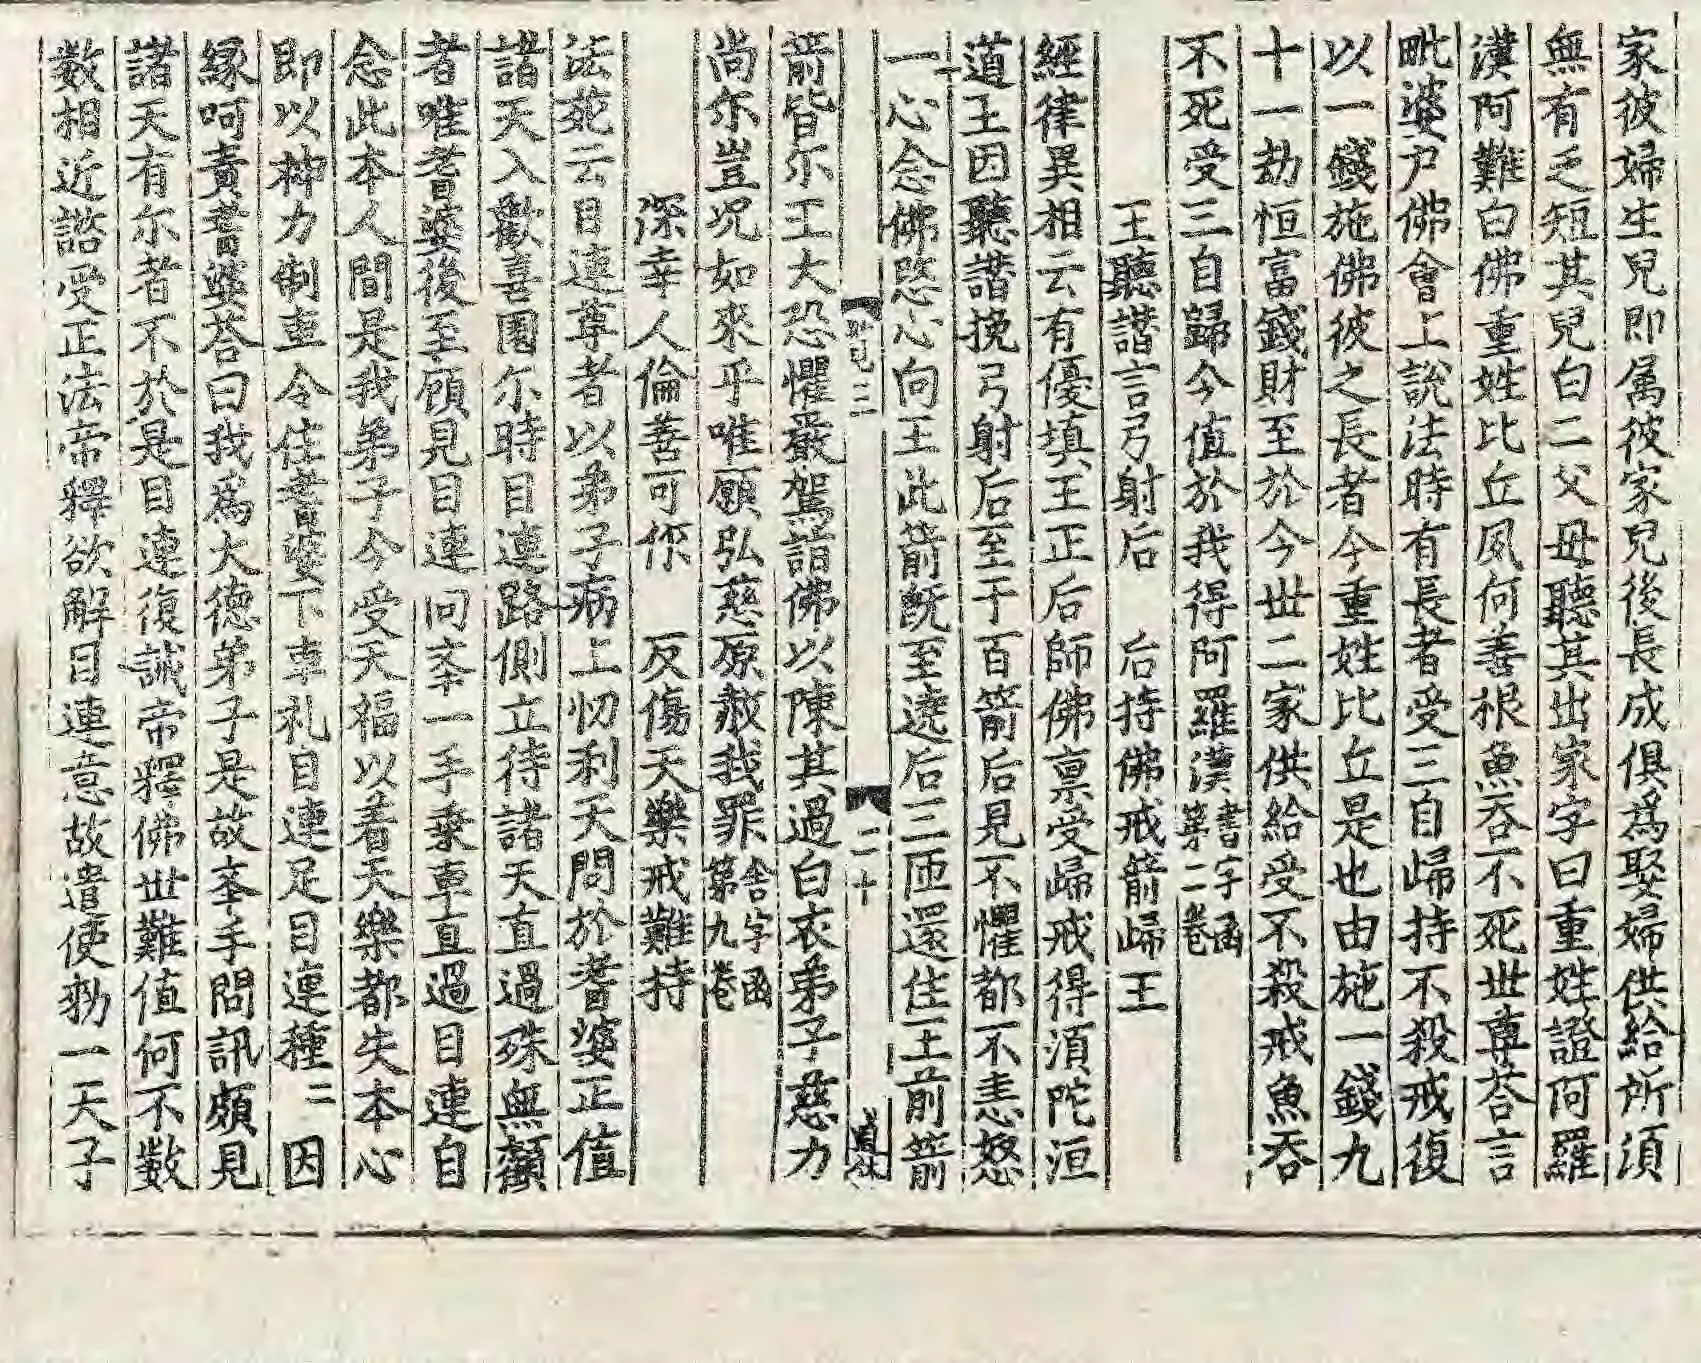 家彼婦生兒即属彼家兒後長成俱爲娶婦供給所須
無有乏短其兒白二父母聽其出家字曰重姓證阿羅
漢阿難白佛重姓比丘夙何善根魚吞不死世尊荅言
毗婆尸佛會上說法時有長者受三自歸持不殺戒復
以一錢施佛彼之長者今重姓比丘是也由施一錢九
十一劫恒富錢財至於今世二家供給受不殺戒魚吞
不死受三自歸今值於我得阿羅漢書字函第二卷
王聽譖言弓射后　后持佛戒箭歸王
經律異相云有優填王正后師佛禀受歸戒得湏陀洹
道王因聽譖挽弓射后至于百箭后見不懼都不恚怒
一心念佛慈心向王此箭旣至遶后三匝還住王前箭
三　二十
箭皆尔王大恐懼嚴駕詣佛以陳其過白衣弟子慈力
尚尔豈况如來乎唯願弘慈原赦我罪舍字函第九卷
深幸人倫善可作　反傷天樂戒難持
法苑云目連尊者以弟子病上忉利天問於耆婆正值
諸天入歡喜園尔時目連路側立待諸天直過殊無顧
者唯耆婆後至顧見目連向本一手乗車直過目連自
念此本人間是我弟子今受天福以着天樂都失本心
即以神力制車令住耆婆下車礼目連足目連種二因
縁呵責耆婆荅曰我爲大德弟子是故本手問訊頗見
諸天有尔者不於是目連復誡帝釋佛世難值何不數
数相近諮受正法帝釋欲解目連意故遣使勑一天子